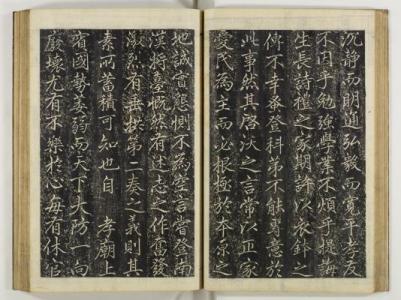 沉静而明通弘毅而寬平孝友
不因乎勉強學業不煩乎提誨
生長詩禮之家期許以衣鉢之
傳不幸登科第不能易意於
此事然其啓沃之言常以正家
愛民為主而必根極於本原之
地誠宙懇惻不為空言嘗登南
漢將臺慨然有述志之作奮發
激烈有無撓第二奏之義則其
素所蓄積可知也自 孝廟上
賓國勢委弱而天下大防一向
廢壞尤有不樂於心每有休官